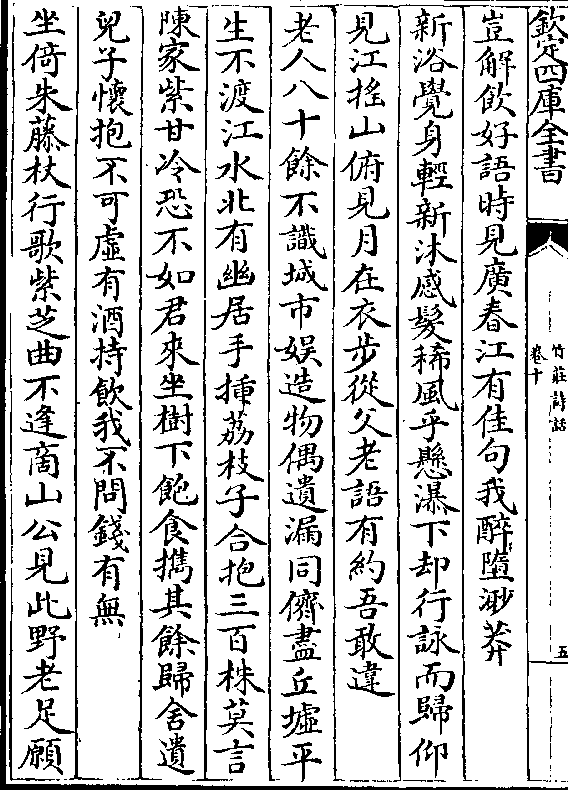 欽定四庫全書
竹莊詩話
卷十
五
豈解飲好語時見廣春江有佳句我醉墮渺莽
新浴覺身輕新沐感髮稀風乎懸瀑下却行詠而歸仰
見江揺山俯見月在衣步從父老語有約吾敢違
老人八十餘不識城市娱造物偶遺漏同儕盡丘墟平
生不渡江水北有幽居手揷荔枝子合抱三百株莫言
陳家紫甘冷恐不如君來坐樹下飽食擕其餘歸舍遺
兒子懷抱不可虛有酒持飲我不問錢有無
坐倚朱藤杖行歌紫芝曲不逢商山公見此野老足願